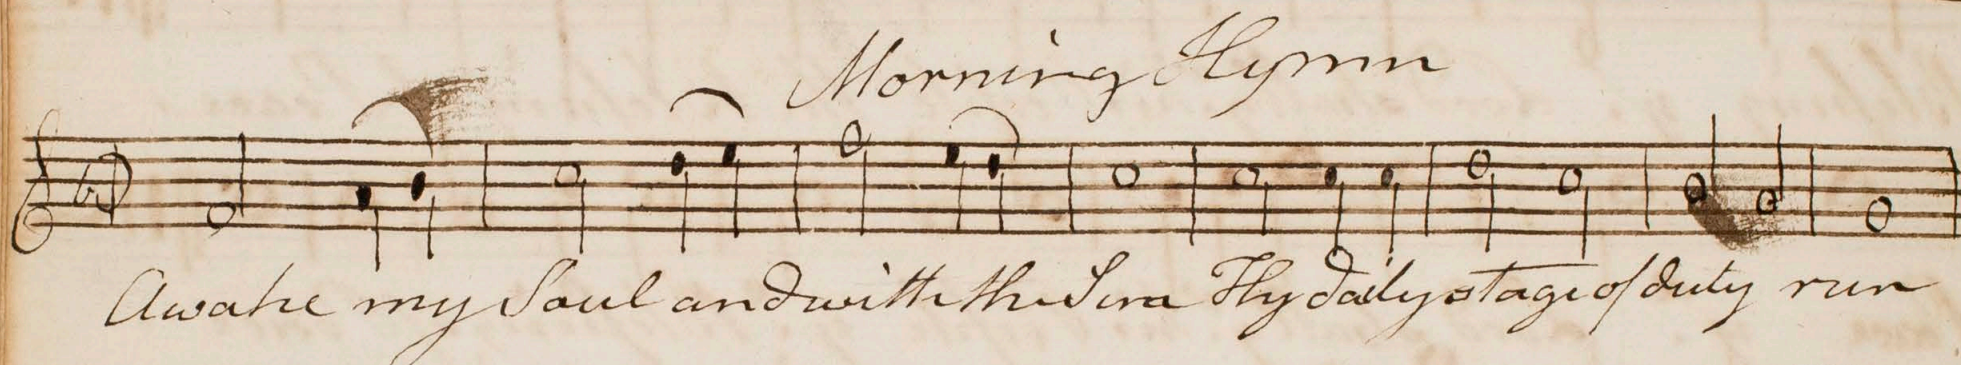 Morning Hymn
Awake my Soul and with the Sun Thy daily stage of duty run